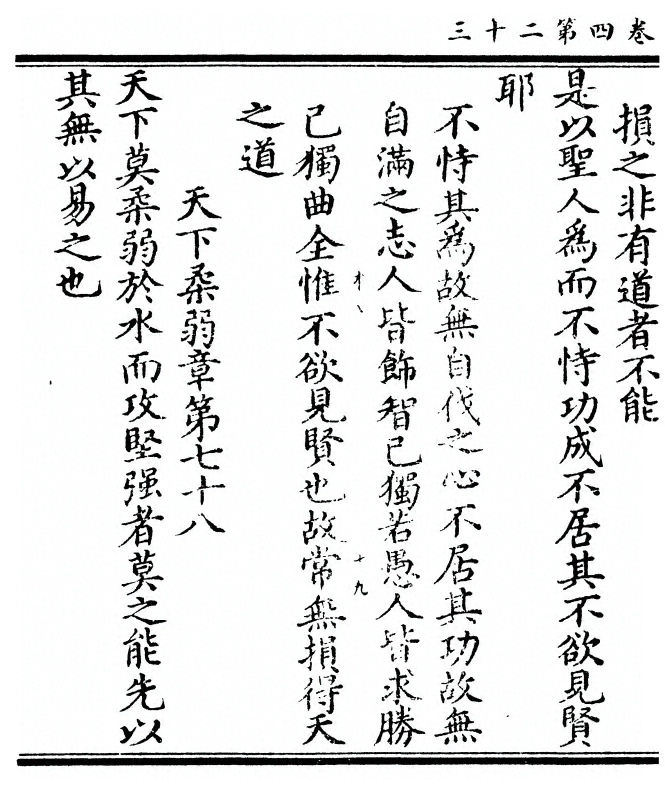 卷四第二十三
損之非有道者不能
是以聖人為而不恃功成不居其不欲見賢
耶
不恃其為故無自伐之心不居其功故無
自滿之志人皆飾智己獨若愚人皆求勝
己獨曲全惟不欲見賢也故常無損得天
之道
天下柔弱章第七十八
天下莫柔弱於水而攻堅强者莫之能先以
其無以易之也
十九